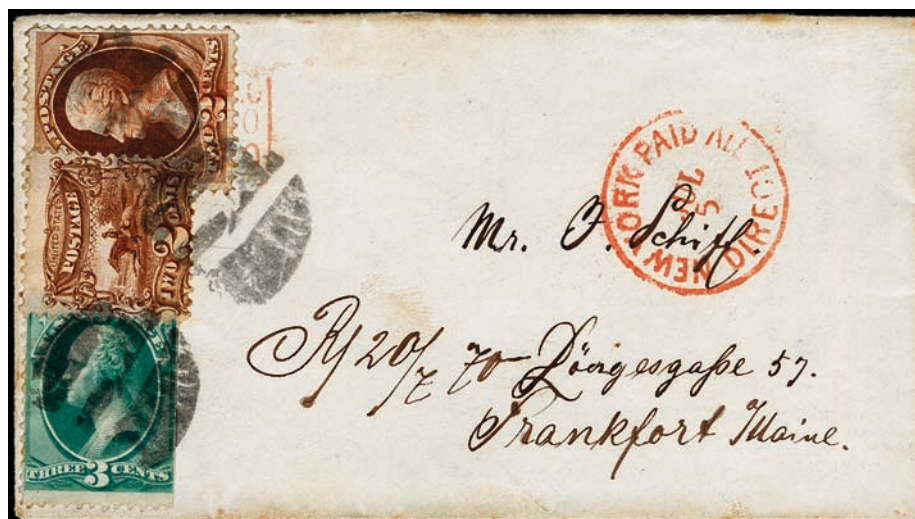 POSTAGE
TWO 2 CENTS
UNITED STATES
POSTAGE
TWO 2 CENTS
THREE 3 CENTS
NEW YORK PAID ALL DIRECT
JUL
5
Mr. O. Schiff.
20/7 70 Döngesgaße 57.
Frankfort Maine.